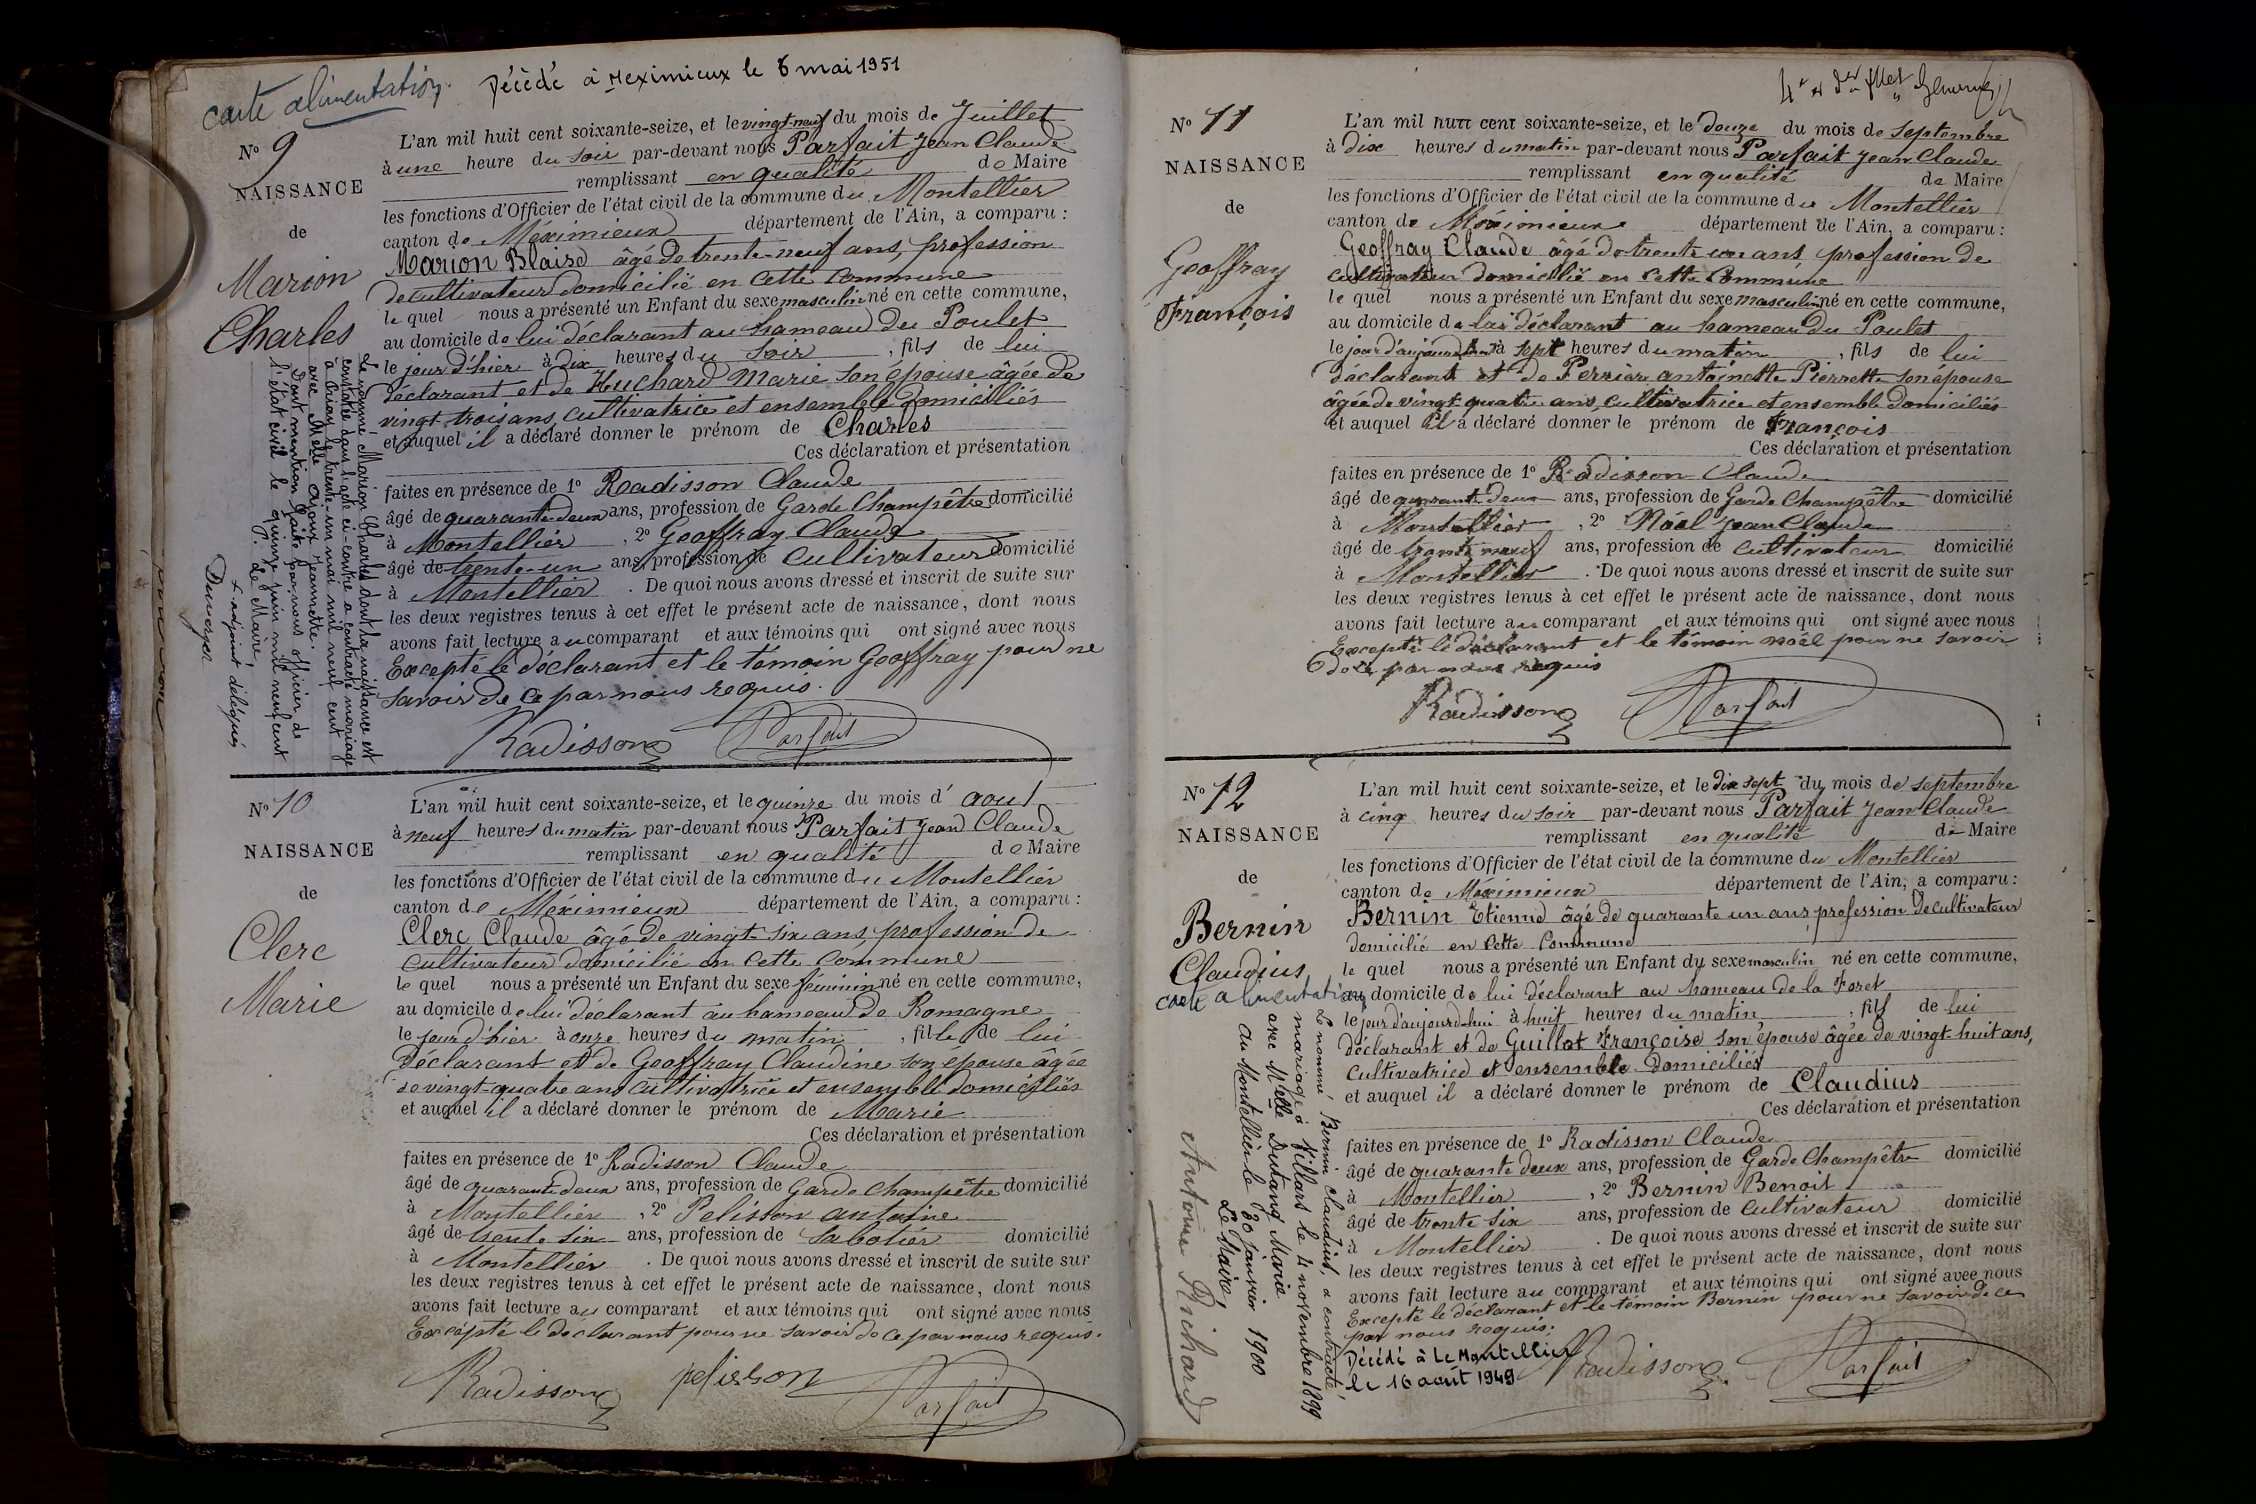 carte alimentation. Décédé à Meximieux le 6 mai 1951
N° 9
NAISSANCE
de
Marion
Charles
L'an mil huit cent soixante-seize, et le vingt-neuf du mois de Juillet
à une heure du soir par-devant nous Parfait Jean Claude
remplissant en qualité de Maire
les fonctions d'Officier de l'état civil de la commune du Montellier
canton de Méximieux département de l'Ain, a comparu :
Marion Blaise âgé de trente-neuf ans, profession
de cultivateur domicilié en cette commune
le quel nous a présenté un Enfant du sexe masculin né en cette commune,
au domicile de lui déclarant au hameau du Poulet
le jour d'hier à dix heures du soir, fils de lui
déclarant et de Huchard Marie son épouse âgée de
vingt-trois ans, cultivatrice et ensemble domiciliés
et auquel il a déclaré donner le prénom de Charles
Ces déclaration et présentation
faites en présence de 1° Radisson Claude
âgé de quarante-deux ans, profession de Garde Champêtre domicilié
à Montellier, 2° Geoffray Claude
âgé de trente-un ans, profession de cultivateur domicilié
à Montellier. De quoi nous avons dressé et inscrit de suite sur
les deux registres tenus à cet effet le présent acte de naissance, dont nous
avons fait lecture au comparant et aux témoins qui ont signé avec nous
Excepté le déclarant et le témoin Geoffray pour ne
savoir de ce par nous requis.
Radisson Parfait
Le nommé Marion Charles dont la naissance est
constatée dans l'acte ci-contre a contracté mariage
à le trente-un mai mil neuf cent
avec Melle Jeannette.
Dont mention faite par nous officier de
l'état civil le quinze juin mil neuf cent
P. le Maire,
L'adjoint délégué,
N° 10
NAISSANCE
de
Clerc
Marie
L'an mil huit cent soixante-seize, et le quinze du mois d'aout
à neuf heures du matin par-devant nous Parfait Jean Claude
remplissant en qualité de Maire
les fonctions d'Officier de l'état civil de la commune du Montellier
canton de Méximieux département de l'Ain, a comparu :
Clerc Claude âgé de vingt-six ans, profession de
cultivateur domicilié en cette commune
le quel nous a présenté un Enfant du sexe féminin né en cette commune,
au domicile de lui déclarant au hameau de Romagne
le jour d'hier à onze heures du matin, fille de lui
déclarant et de Geoffray Claudine son épouse âgée
de vingt-quatre ans cultivatrice et ensemble domiciliés
et auquel il a déclaré donner le prénom de Marie
Ces déclaration et présentation
faites en présence de 1° Radisson Claude
âgé de quarante-deux ans, profession de Garde Champêtre domicilié
à Montellier, 2° Pelisson antoine
âgé de trente six ans, profession de Sabotier domicilié
à Montellier. De quoi nous avons dressé et inscrit de suite sur
les deux registres tenus à cet effet le présent acte de naissance, dont nous
avons fait lecture au comparant et aux témoins qui ont signé avec nous
Excepté le déclarant pour ne savoir de ce par nous requis.
Radisson pelisson Parfait
N° 11
NAISSANCE
de
Geoffray
François
L'an mil huit cent soixante-seize, et le douze du mois de septembre
à dix heures du matin par-devant nous Parfait Jean Claude
remplissant en qualité de Maire
les fonctions d'Officier de l'état civil de la commune du Montellier
canton de Méximieux département de l'Ain, a comparu :
Geoffray Claude âgé de trente un ans profession de
cultivateur domicilié en cette commune
le quel nous a présenté un Enfant du sexe masculin né en cette commune,
au domicile de lui déclarant au hameau du Poulet
le jour d'aujourd'hui à sept heures du matin, fils de lui
déclarant et de Perrier antoinette Pierrette son épouse
âgée de vingt-quatre ans, cultivatrice et ensemble domiciliés
et auquel il a déclaré donner le prénom de François
Ces déclaration et présentation
faites en présence de 1° Radisson Claude
âgé de quarante deux ans, profession de Garde Champêtre domicilié
à Montellier, 2° Noël Jean Claude
âgé de trente neuf ans, profession de cultivateur domicilié
à Montellier. De quoi nous avons dressé et inscrit de suite sur
les deux registres tenus à cet effet le présent acte de naissance, dont nous
avons fait lecture au comparant et aux témoins qui ont signé avec nous
Excepté le déclarant et le témoin noël pour ne savoir
de ce par nous requis
Radisson Parfait
N° 12
NAISSANCE
de
Bernin
Claudius
carte alimentation
L'an mil huit cent soixante-seize, et le dix sept du mois de septembre
à cinq heures du soir par-devant nous Parfait Jean Claude
remplissant en qualité de Maire
les fonctions d'Officier de l'état civil de la commune du Montellier
canton de Méximieux département de l'Ain, a comparu :
Bernin Etienne âgé de quarante un ans profession de cultivateur
domicilié en cette commune
le quel nous a présenté un Enfant du sexe masculin né en cette commune,
au domicile de lui déclarant au hameau de la Foret
le jour d'aujourd'hui à huit heures du matin, fils de lui
déclarant et de Guillot Françoise son épouse âgée de vingt-huit ans,
cultivatrice et ensemble domiciliés
et auquel il a déclaré donner le prénom de Claudius
Ces déclaration et présentation
faites en présence de 1° Radisson Claude
âgé de quarante deux ans, profession de Garde Champêtre domicilié
à Montellier, 2° Bernin Benoit
âgé de trente six ans, profession de cultivateur domicilié
à Montellier. De quoi nous avons dressé et inscrit de suite sur
les deux registres tenus à cet effet le présent acte de naissance, dont nous
avons fait lecture au comparant et aux témoins qui ont signé avec nous
Excepté le déclarant et le témoin Bernin pour ne savoir de ce
par nous requis.
Décédé à Le Montellier
le 16 août 1949
Radisson Parfait
Le nommé Bernin Claudius, a contracté
mariage à Villars le 4 novembre 1899
avec Melle Dutang Marie
au Montellier le 30 janvier 1900
Le Maire,
Antoine Richard